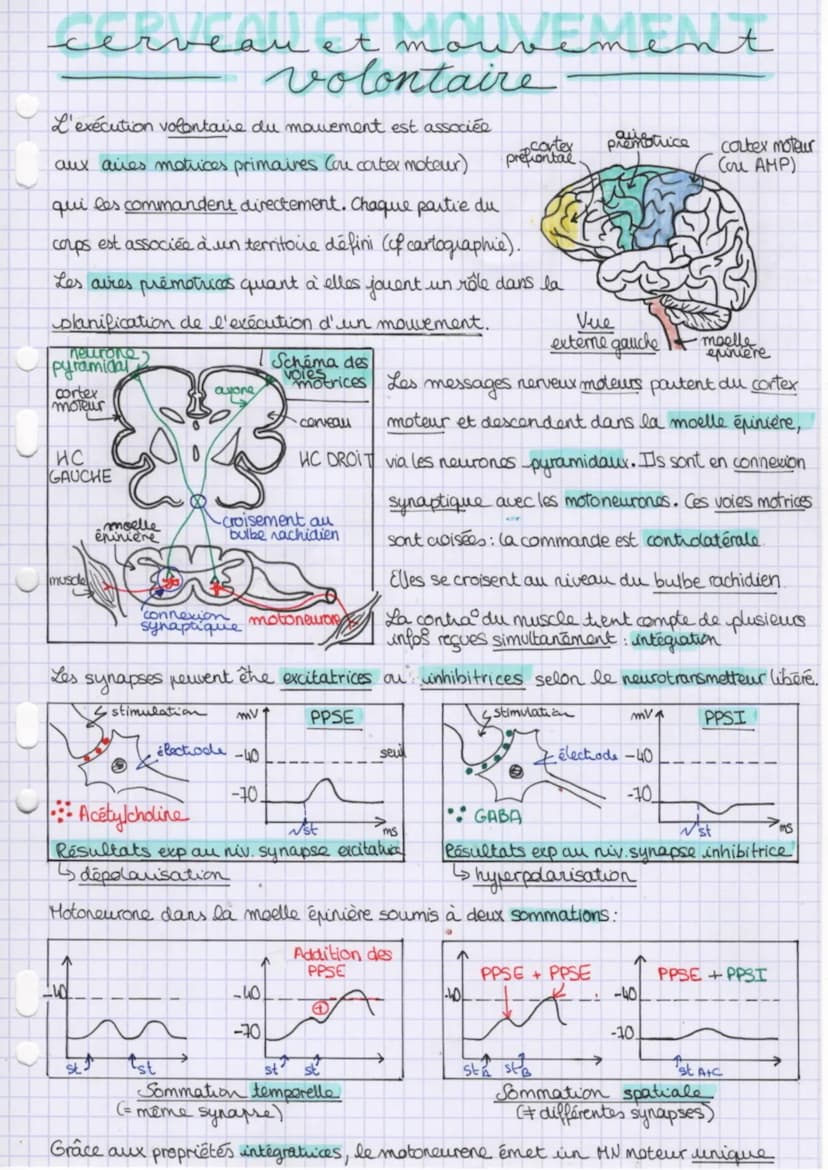 CERVEAU ET MOUVEMENT
cerveau et mouvement
volontaire
L'exécution volontaire du mouvement est associée
aux aires motrices primaires (ou cortex moteur)
qui les commandent directement. Chaque partie du
corps est associée à un territoire défini (cf cartographie).
Les aires prémotrices quant à elles jouent un rôle dans la
planification de l'exécution d'un mouvement.
cortex
préfrontal
aire
prémotrice
cortex moteur
(ou AMP)
Vue
externe gauche
moelle
épinière
neurone
pyramidal
Schéma des
voies
motrices
cortex
moteur
axone
cerveau
HC
GAUCHE
HC DROIT
croisement au
bulbe rachidien
moelle
épinière
muscle
connexion
synaptique
motoneurone
Les messages nerveux moteurs partent du cortex
moteur et descendent dans la moelle épinière,
via les neurones pyramidaux. Ils sont en connexion
synaptique avec les motoneurones. Ces voies motrices
sont croisées : la commande est controlatérale
Elles se croisent au niveau du bulbe rachidien.
La contra° du muscle tient compte de plusieurs
infos reçues simultanément : intégration
Les synapses peuvent être excitatrices ou inhibitrices selon le neurotransmetteur libéré.
stimulation
électrode
Acétylcholine
mV
PPSE
-40
seuil
-70
st
ms
Résultats exp au niv. synapse excitatrice
↳ dépolarisation
stimulation
électrode
GABA
mV
PPSI
-40
-70
st
ms
Résultats exp au niv. synapse inhibitrice
↳ hyperpolarisation
Motoneurone dans la moelle épinière soumis à deux sommations :
-40
st st
Addition des
PPSE
-40
+
-70
st st
Sommation temporelle
(= même synapse)
PPSE + PPSE
-40
st A st B
PPSE + PPSI
-40
-70
st A+C
Sommation spatiale
(≠ différentes synapses)
Grâce aux propriétés intégratrices, le motoneurone émet un MN moteur unique